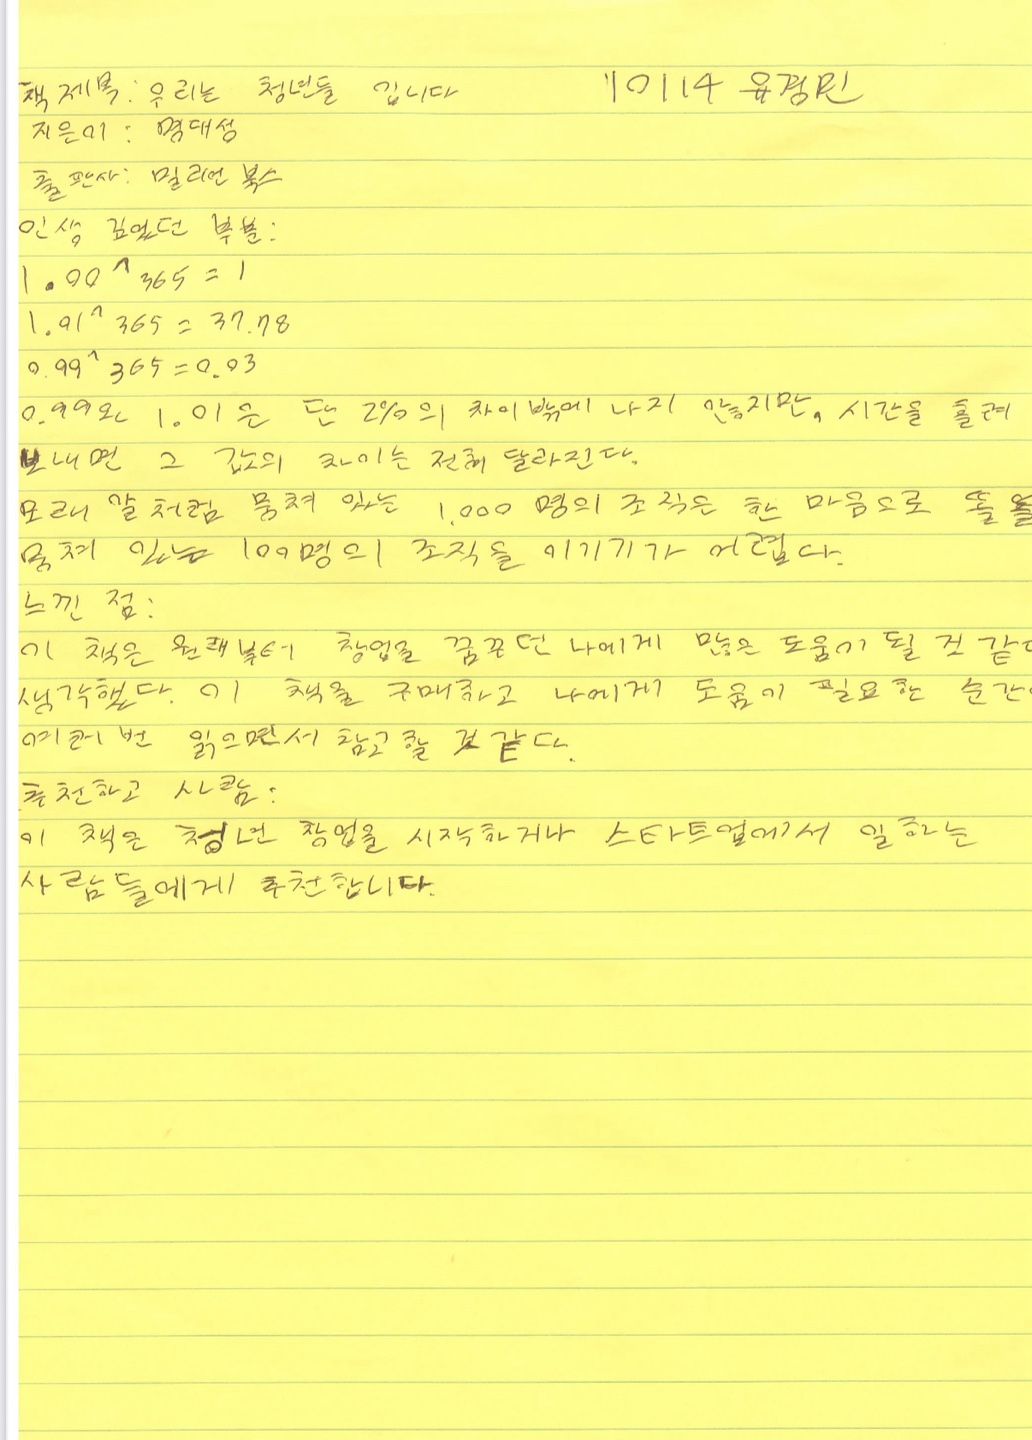 책 제목: 우리는 청년들 입니다 10114 윤경민
지은이: 명대성
출판사: 밀리언 북스
인생 깊었던 부분:
1.00^365 = 1
1.01^365 = 37.78
0.99^365 = 0.03
0.99와 1.01은 단 2%의 차이밖에 나지 않지만, 시간을 흘려
보내면 그 값의 차이는 전혀 달라진다.
모래 알처럼 뭉쳐 있는 1,000 명의 조직은 한 마음으로 똘똘
뭉쳐 있는 100명의 조직을 이기기가 어렵다.
느낀 점:
이 책은 원래부터 창업을 꿈꾸던 나에게 많은 도움이 될 것 같다
생각했다. 이 책을 구매하고 나에게 도움이 필요한 순간
여러 번 읽으면서 참고할 것 같다.
추천하고 사람:
이 책은 청년 창업을 시작하거나 스타트업에서 일하는
사람들에게 추천합니다.